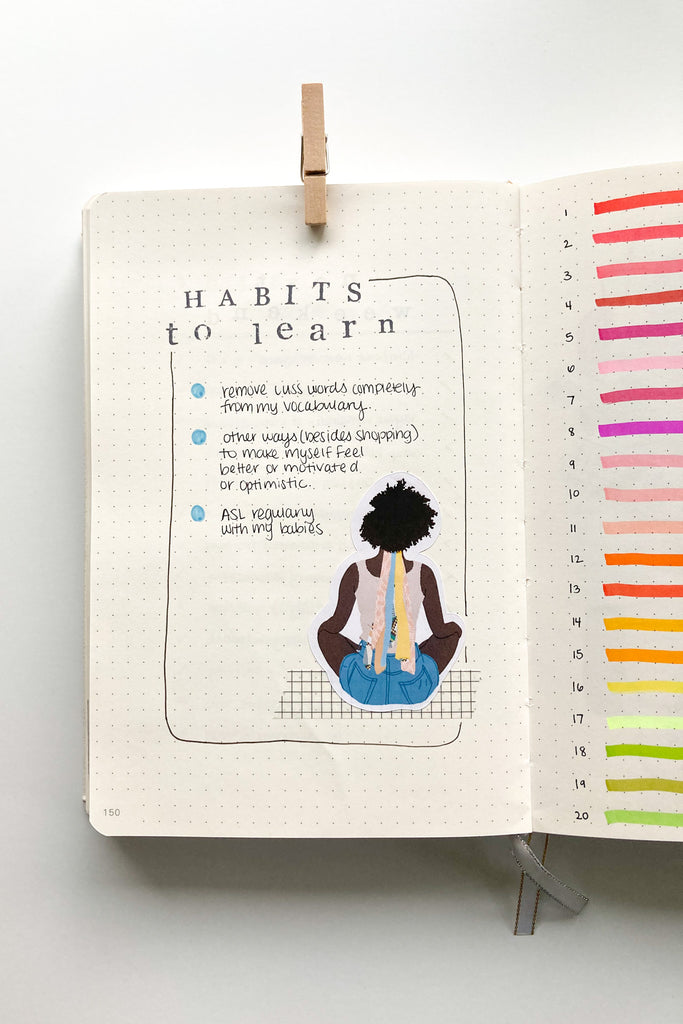 HABITS
to learn
remove cuss words completely
from my vocabulary.
other ways (besides shopping)
to make myself feel
better or motivated
or optimistic.
ASL regularly
with my babies
150
1
2
3
4
5
6
7
8
9
10
11
12
13
14
15
16
17
18
19
20